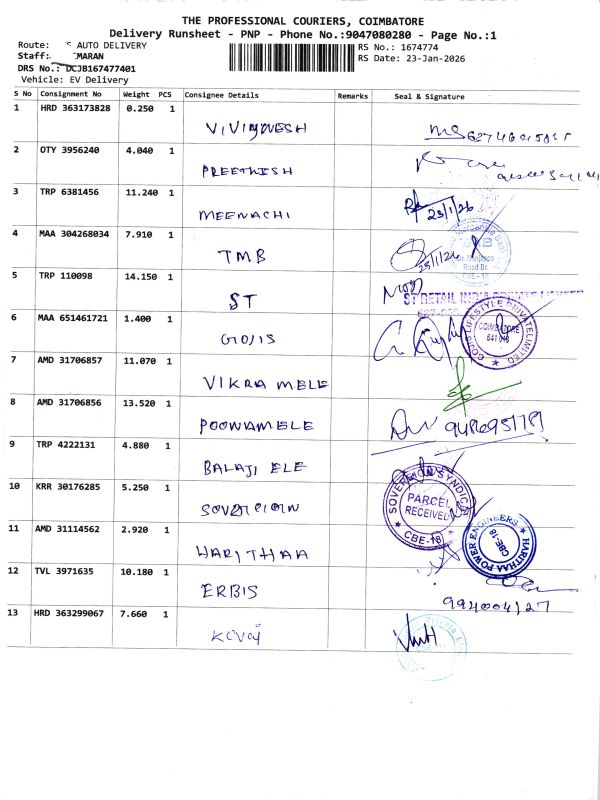 THE PROFESSIONAL COURIERS, COIMBATORE
Delivery Runsheet - PNP - Phone No.:9047080280 - Page No.:1
Route: S AUTO DELIVERY
RS No.: 1674774
Staff: MARAN
RS Date: 23-Jan-2026
DRS No.: DCJB167477401
Vehicle: EV Delivery
S No Consignment No Weight PCS Consignee Details Remarks Seal & Signature
1 HRD 363173828 0.250 1
2 OTY 3956240 4.040 1 PREETHISH
3 TRP 6381456 11.240 1 MEENACHI 23/1/26
4 MAA 304268034 7.910 1 TMB 23/1/26
5 TRP 110098 14.150 1 ST
ST RETAIL INDIA PRIVATE LIMITED
6 MAA 651461721 1.400 1
LIFESTYLE PRIVATE LIMITED COIMBATORE
7 AMD 31706857 11.070 1 VIKRAMELE
8 AMD 31706856 13.520 1 POONAMELE
9 TRP 4222131 4.880 1 BALAJI ELE
10 KRR 30176285 5.250 1
SOVEREIGN SYNDICATE PARCEL RECEIVED CBE-18
11 AMD 31114562 2.920 1 HARITHAA
HARITHAA POWER ENGINEERS CBE-18
12 TVL 3971635 10.180 1 ERBIS
13 HRD 363299067 7.660 1 KOVAI